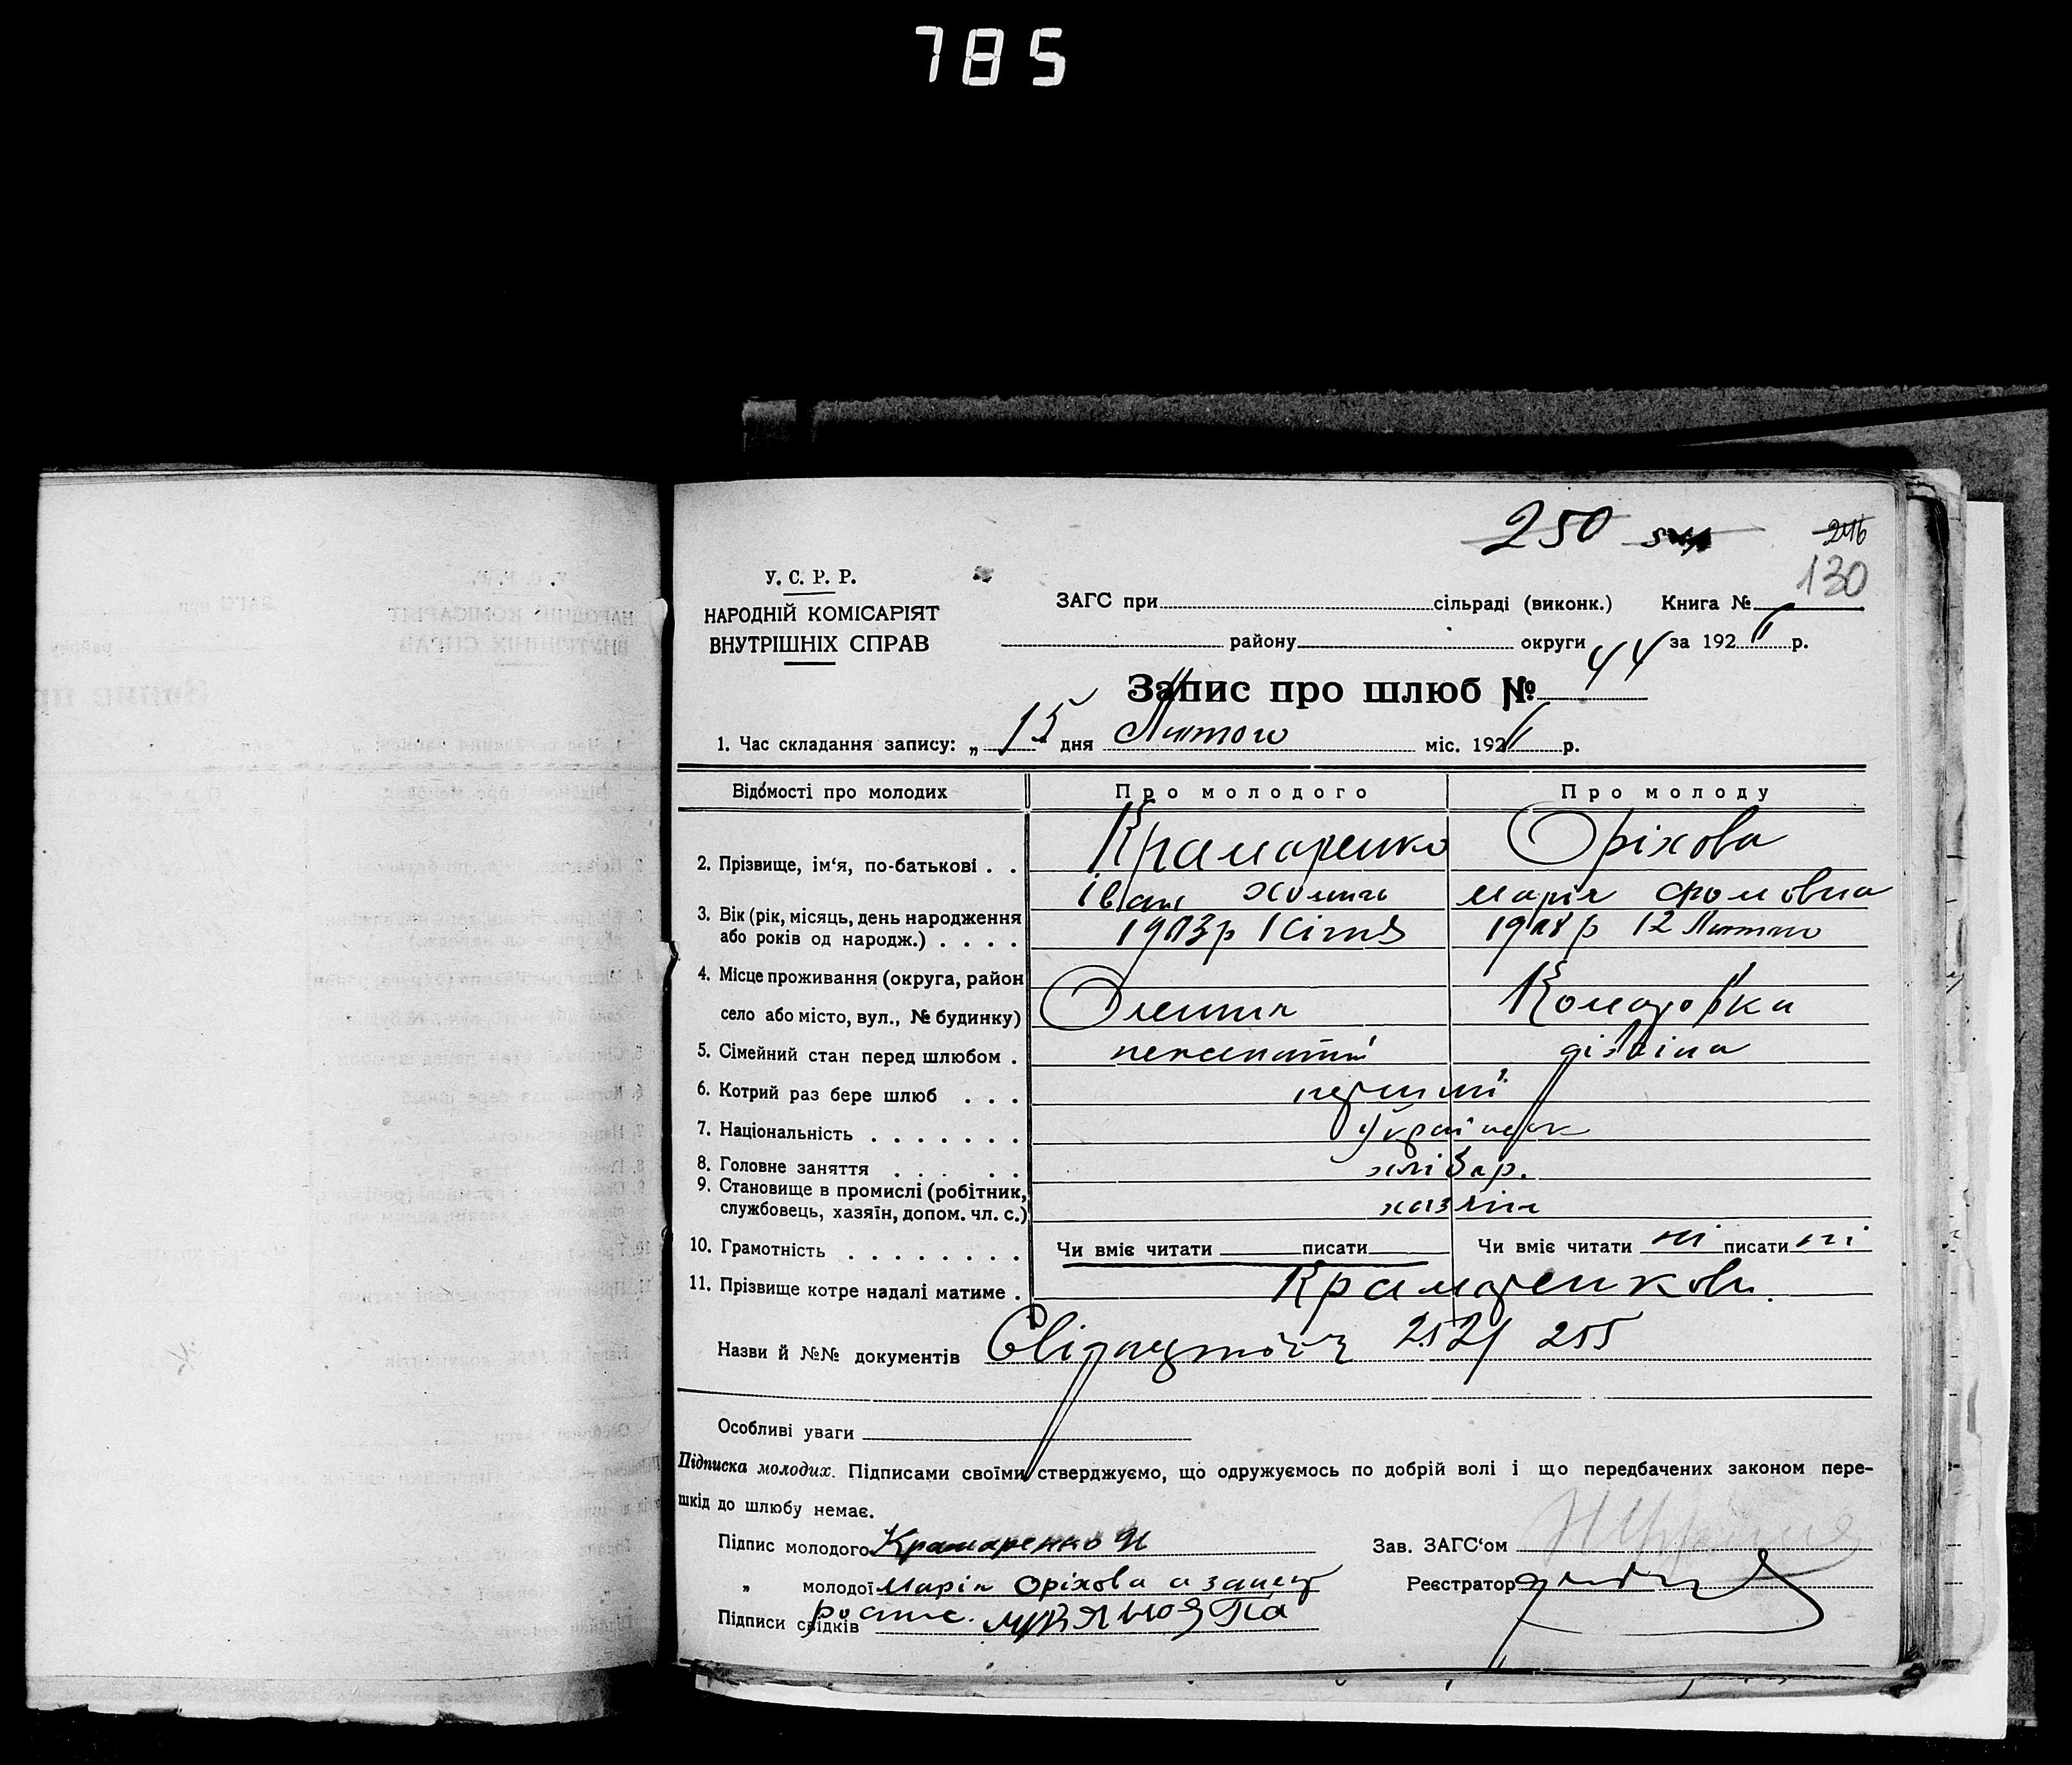 785
250
246
130
У. С. Р. Р.
НАРОДНІЙ КОМІСАРІЯТ
ВНУТРІШНІХ СПРАВ
ЗАГС при сільраді (виконк.) Книга №
району округи за 1926 р.
Запис про шлюб № 44
1. Час складання запису: „15" дня Лютого міс. 1926 р.
Відомості про молодих Про молодого Про молоду
2. Прізвище, ім'я, по-батькові . . Крамаренко Оріхова
Іван Хомич Марія Фомовна
3. Вік (рік, місяць, день народження
або років од народж.) . . . . 1903р 1908р 12 Лютого
4. Місце проживання (округа, район
село або місто, вул., № будинку) Комаровка
5. Сімейний стан перед шлюбом . нежонатий дівчина
6. Котрий раз бере шлюб . . . перший
7. Національність . . . . . . .
8. Головне заняття . . . . . хлібор.
9. Становище в промислі (робітник,
службовець, хазяїн, допом. чл. с.) хазяїн
10. Грамотність . . . . . . . . Чи вміє читати писати Чи вміє читати ні писати ні
11. Прізвище котре надалі матиме . Крамаренкови.
Назви й №№ документів 252/255
Особливі уваги
Підписка молодих. Підписами своїми стверджуємо, що одружуємось по добрій волі і що передбачених законом пере-
шкід до шлюбу немає.
Підпис молодого Крамаренко И Зав. ЗАГС'ом
„ молодої Марія Оріхова а за неї Реєстратор
роспис.
Підписи свідків